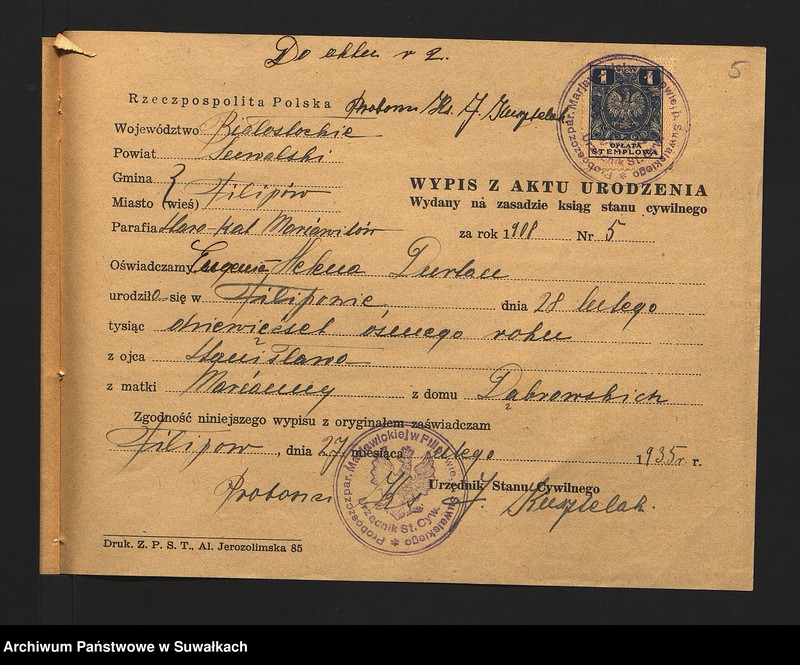 Do aktu nr 2.
5
Rzeczpospolita Polska
Probosz Ks. J. Kusztelak
Województwo Białostockie
Powiat Suwalski
Gmina
Miasto (wieś) Filipów
Parafia Staro-Kat Mariawitów
1 1
OPŁATA
STEMPLOWA
WYPIS Z AKTU URODZENIA
Wydany na zasadzie ksiąg stanu cywilnego
za rok 1908 Nr 5
Oświadczamy Eugenia Helena
urodziła się w Filipowie dnia 28 lutego
tysiąc dziewięćset ósmego roku
z ojca Stanisława
z matki Marianny z domu Dąbrowskich
Zgodność niniejszego wypisu z oryginałem zaświadczam
Filipów, dnia 27 miesiąca lutego 1935 r. r.
Urzędnik Stanu Cywilnego
Proboszcz Ks. J. Kusztelak.
Proboszcz par. Marjawickiej w Filipowie p. Suwalskiego
Urzędnik St. Cyw.
Druk. Z. P. S. T., Al. Jerozolimska 85
Archiwum Państwowe w Suwałkach